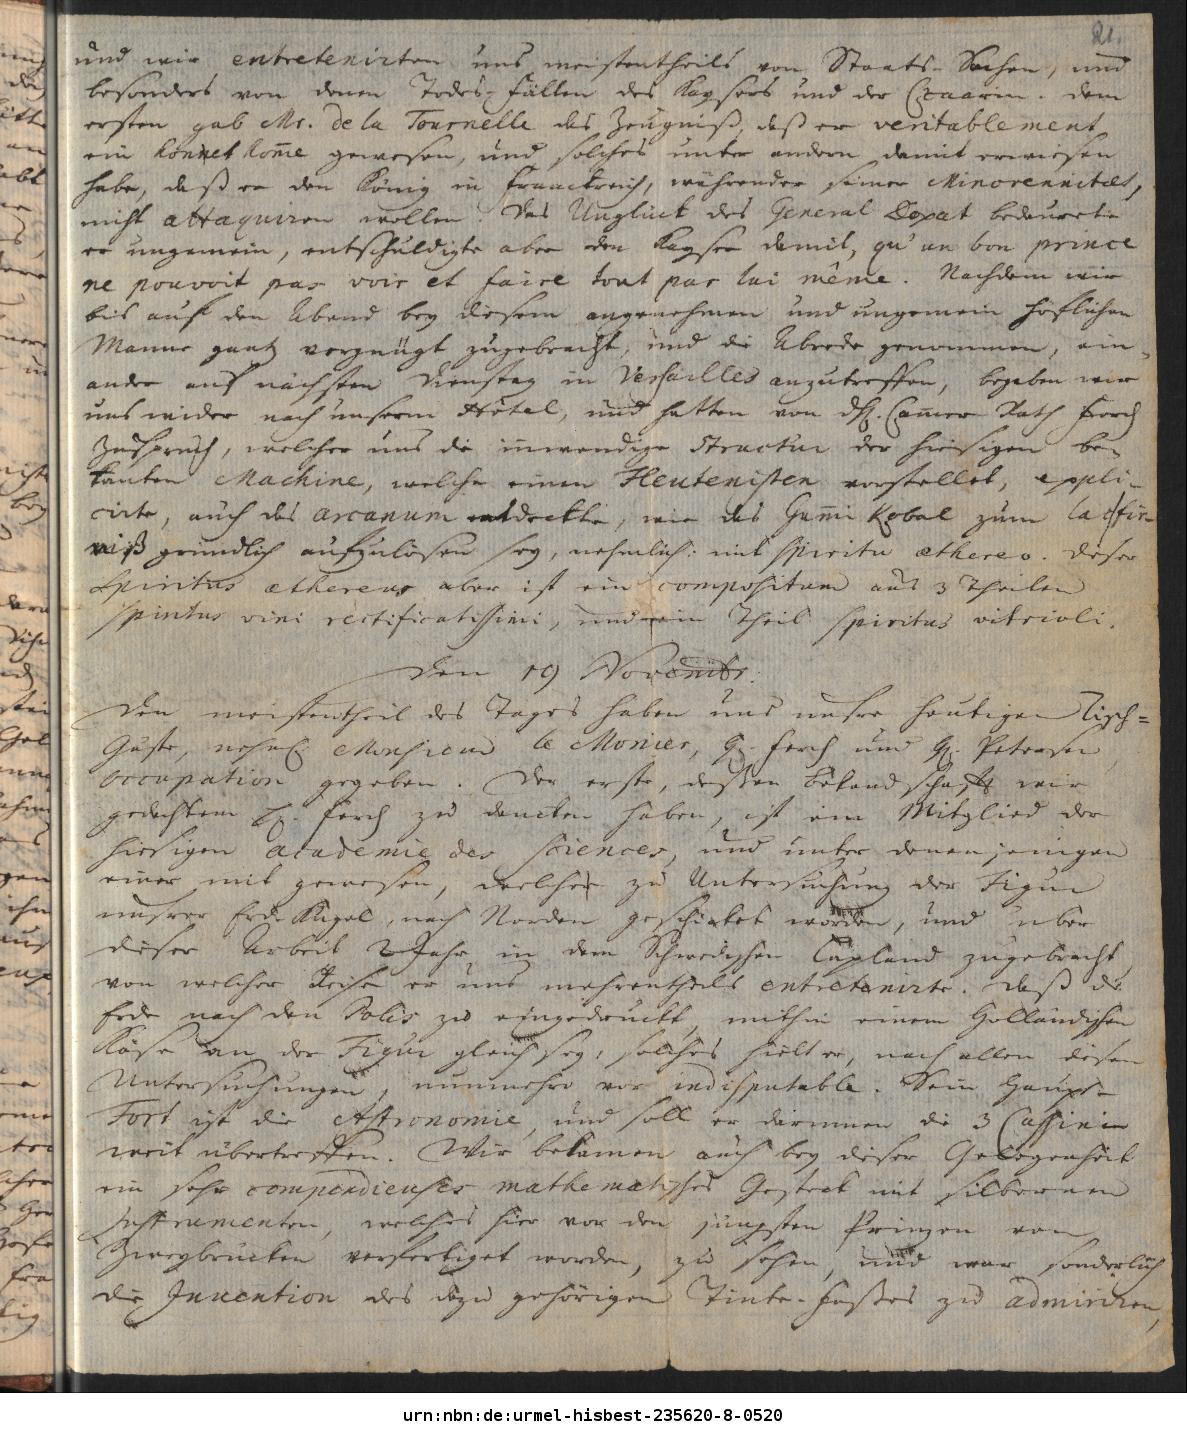 21.
und wir entretenirten uns meistentheils von Staats-Sachen, und
besonders von denen Todes-Fällen des Kaysers und der Czaarin. dem
ersten gab Mr. de la Tournelle das Zeugniß, daß er veritablement
ein honnet home gewesen, und solches unter andern damit erwiesen
habe, daß er den König in Franckreich, währender seiner Minorennitæt,
nicht attaquiren wollen. Das Unglück des General Doxat bedaurete
er ungemein, entschuldigte aber den Kayser damit, qu'un bon prince
ne pouvoit pas voir et faire tout par lui même. Nachdem wir
bis auf den Abend bey diesem angenehmen und ungemein höflichen
Manne gantz vergnügt zugebracht, und die Abrede genommen, ein-
ander auf nächsten Dienstag in Versailles anzutreffen, begaben wir
uns wider nach unserm Hôtel, und hatten von dH. Camer Rath Ferch
Zuspruch, welcher uns die inwendige Structur der hiesigen be-
kanten Machine, welche einen Fleutenisten vorstellet, expli-
cirte, auch das arcanum entdeckte, wie das Gumi Kobal zum Lacfir-
niß gründlich aufzulösen sey, nehmlich: mit Spiritu æthereo. dieser
Spiritus æthereus aber ist ein compositum aus 3 Theilen
Spiritus vini rectificatissimi, und ein Theil Spiritus vitrioli.
Den 19 Novembr.
Den meistentheil des Tages haben uns unsre heutigen Tisch=
Gäste, nehml. Monsieur le Monier, H. Ferch und H. Petersen
occupation gegeben. Der erste, dessen Bekandschafft wir
gedachtem H. Ferch zu dancken haben, ist ein Mitglied der
hiesigen academie des Sciences, und unter denenjenigen
einer mit gewesen, welcher zu Untersuchung der Figur
unsrer Erd-Kugel, nach Norden geschicket worden, und über
dieser Arbeit 2 Jahr in dem Schwedischen Lapland zugebracht,
von welcher Reise er uns mehrentheils entretenirte. Daß die
Erde nach den Polis zu eingedruckt, mithin einem Holländischen
Käse an der Figur gleich sey, solches hielt er, nach allen diesen
Untersuchungen, nunmehro vor indisputable. Sein Haupt-
Fort ist die Astronomie, und soll er darinnen die 3 Cassini
weit übertreffen. Wir bekamen auch bey dieser Gelegenheit
ein sehr compendieuses mathematisches Besteck mit silbernen
Instrumenten, welches hier vor den jüngsten Prinzen von
Zweybrücken verfertiget worden, zu sehen, und war sonderlich
die Invention des dazu gehörigen Tinte-Fasses zu admiriren,
urn:nbn:de:urmel-hisbest-235620-8-0520